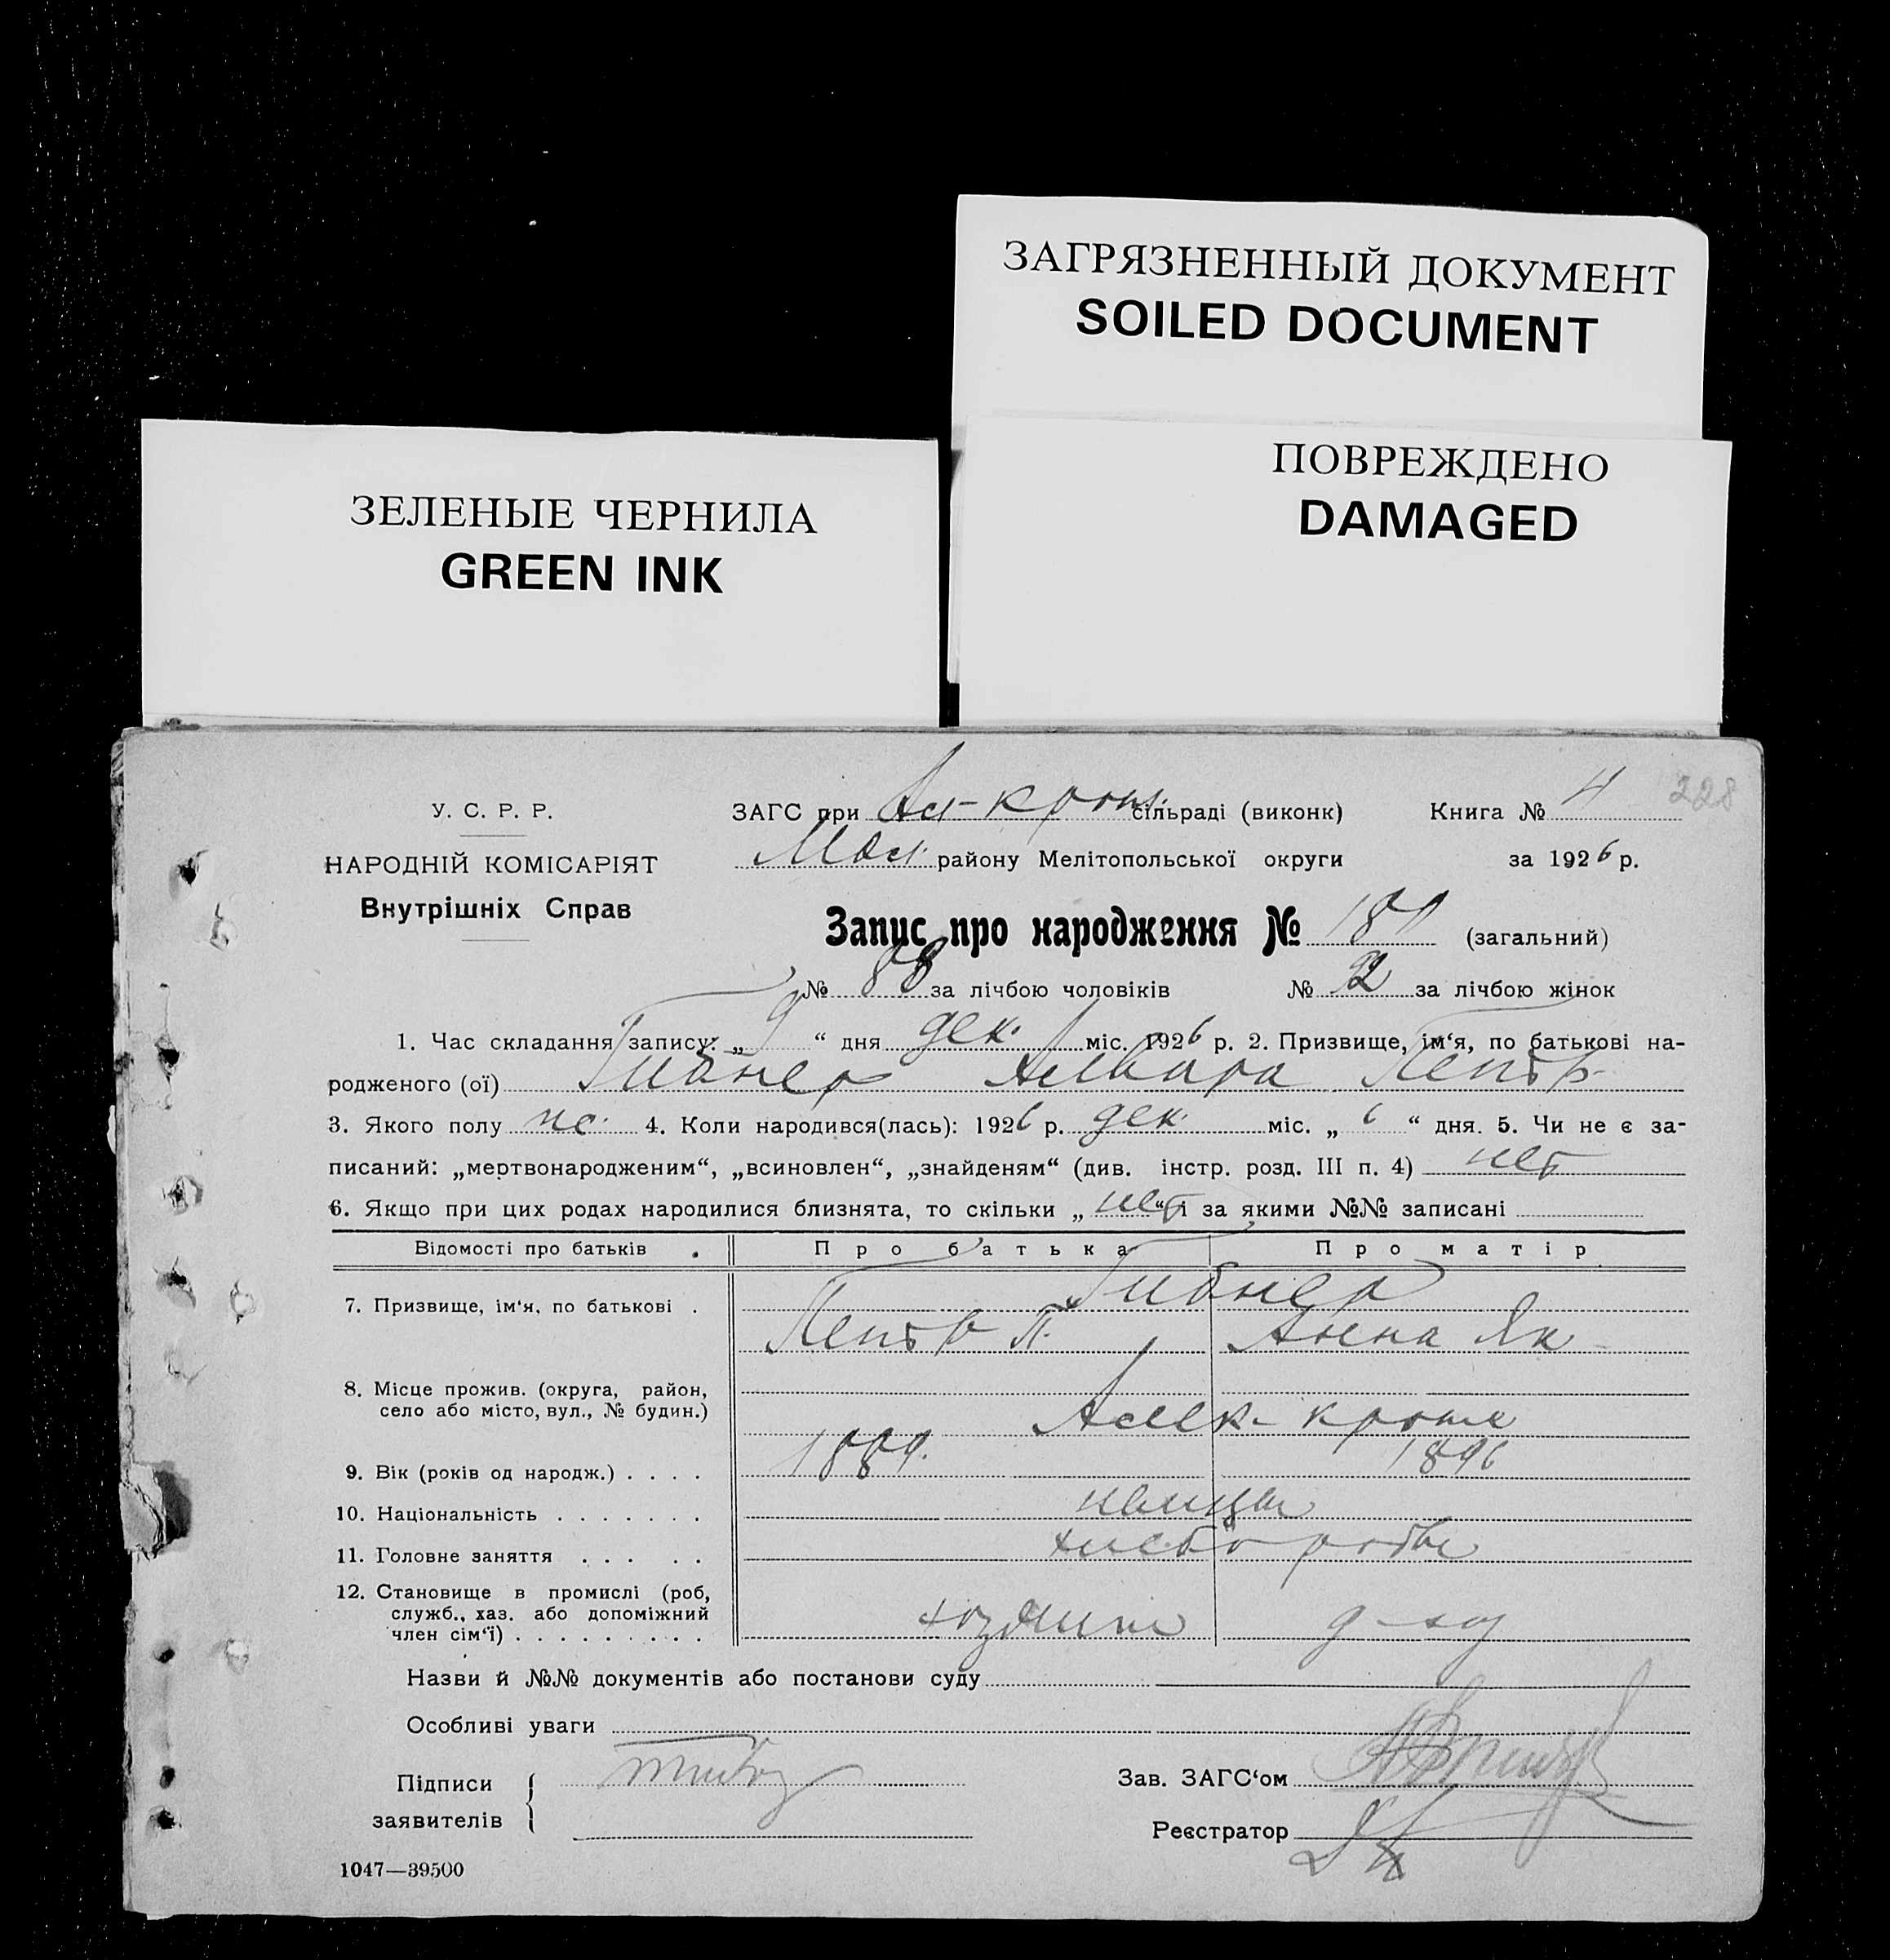 ЗАГРЯЗНЕННЫЙ ДОКУМЕНТ
SOILED DOCUMENT
ПОВРЕЖДЕНО
DAMAGED
ЗЕЛЕНЫЕ ЧЕРНИЛА
GREEN INK
228
У. С. Р. Р.
НАРОДНІЙ КОМІСАРІЯТ
Внутрішніх Справ
ЗАГС при Ал-крон. сільраді (виконк) Книга № 4
Мол. району Мелітопольської округи за 1926 р.
Запис про народження № (загальний)
№ 88 за лічбою чоловіків № за лічбою жінок
1. Час складання запису: „ 9 “ дня дек. міс. 1926 р. 2. Призвище, ім‘я, по батькові на-
родженого (ої) Гибнер Петр
3. Якого полу 4. Коли народився(лась): 1926 р. дек. міс. „ 6 “ дня. 5. Чи не є за-
писаний: „мертвонародженим“, „всиновлен“, „знайденям“ (див. інстр. розд. III п. 4) нет
6. Якщо при цих родах народилися близнята, то скільки „ нет “ і за якими №№ записані
Відомості про батьків Про батька Про матір
7. Призвище, ім‘я, по батькові . Гибнер
Петр П. Анна Як
8. Місце прожив. (округа, район,
село або місто, вул., № будин.) Алек- крон
9. Вік (років од народж.) . . . . 1889. 1896
10. Національність . . . . . . . немцы
11. Головне заняття . . . . . хлеборобы
12. Становище в промислі (роб,
служб., хаз. або допоміжний
член сім‘ї) . . . . . . . . .
Назви й №№ документів або постанови суду
Особливі уваги
Підписи
заявителів
Зав. ЗАГС‘ом
Реєстратор
1047—39500